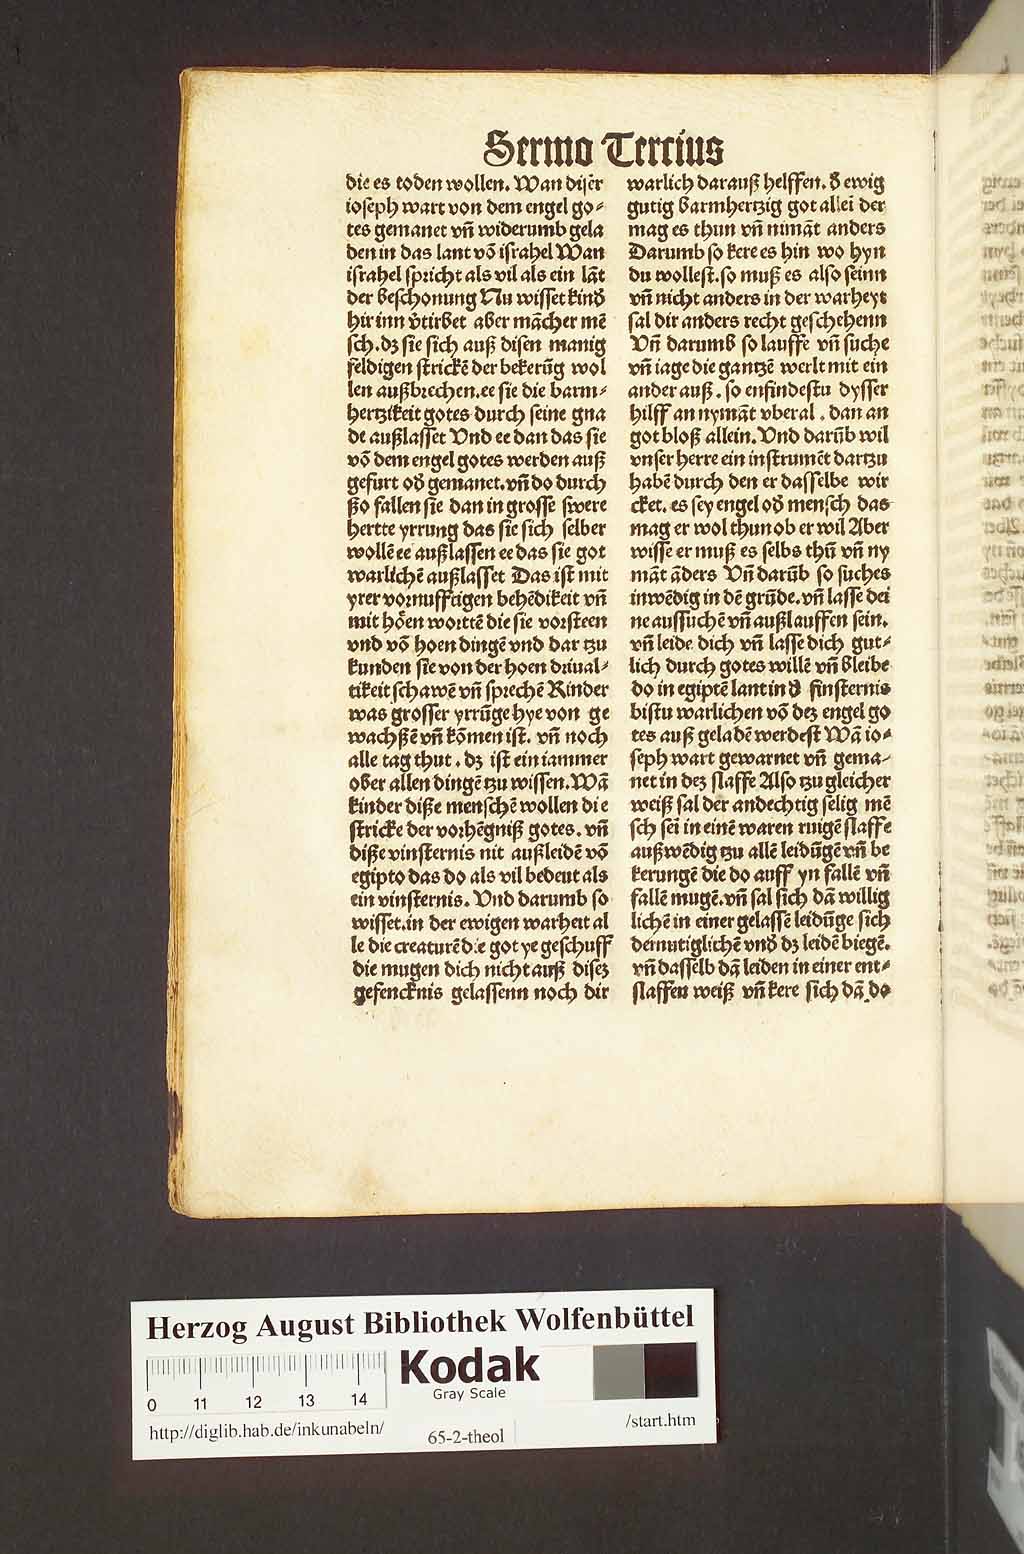 Sermo Tercius
die es toden wollen. Wan diser
ioseph wart von dem engel go⸗
tes gemanet vñ widerumb gela
den in das lant võ israhel Wan
israhel spricht als vil als ein lãt
der beschonung Nu wisset kinď
hir inn v̓tirbet aber mãcher mẽ
sch. dz sie sich auß disen manig
feldigen strickẽ der bekerũg wol
len außbrechen. ee sie die barm⸗
hertzikeit gotes durch seine gna
de außlasset Vnd ee dan das sie
võ dem engel gotes werden auß
gefurt oď gemanet. vñ do durch
ßo fallen sie dan in grosse swere
hertte yrrung das sie sich selber
wollẽ ee außlassen ee das sie got
warlichẽ außlasset Das ist mit
yrer vornufftigen behẽdikeit vñ
mit hoẽn worttẽ die sie vorsteen
vnd võ hoen dingẽ vnd dar tzu
kunden sie von der hoen driual⸗
tikeit schawẽ vñ sprechẽ Kinder
was grosser yrrũge hye von ge
wachßẽ vñ kõmen ist. vñ noch
alle tag thut. dz ist ein iammer
ober allen dingẽ tzu wissen. Wã
kinder diße menschẽ wollen die
stricke der vorhẽgniß gotes. vñ
diße vinsternis nit außleidẽ võ
egipto das do als vil bedeut als
ein vinsternis. Vnd darumb so
wisset. in der ewigen warheit al
le die creaturẽ die got ye geschuff
die mugen dich nicht auß disez
gefencknis gelassenn noch dir
warlich darauß helffen. ď ewig
gutig barmhertzig got allei der
mag es thun vñ nimãt anders
Darumb so kere es hin wo hyn
du wollest. so muß es also seinn
vñ nicht anders in der warheyt
sal dir anders recht geschehenn
Vñ darumb so lauffe vñ suche
vñ iage die gantzẽ werlt mit ein
ander auß. so enfindestu dysser
hilff an nymãt vberal. dan an
got bloß allein. Vnd darũb wil
vnser herre ein instrumẽt dartzu
habẽ durch den er dasselbe wir
cket. es sey engel oď mensch das
mag er wol thun ob er wil Aber
wisse er muß es selbs thũ vñ ny
mãt ãders Vñ darũb so suches
inwẽdig in dẽ grũde. vñ lasse dei
ne aussuchẽ vñ außlauffen sein.
vñ leide dich vñ lasse dich gut⸗
lich durch gotes willẽ vñ bleibe
do in egiptẽ lant in ď finsternis
bistu warlichen võ dez engel go
tes auß geladẽ werdest Wã io⸗
seph wart gewarnet vñ gema⸗
net in dez slaffe Also tzu gleicher
weiß sal der andechtig selig mẽ
sch sei in einẽ waren ruigẽ slaffe
außwẽdig tzu allẽ leidũgẽ vñ be
kerungẽ die do auff yn fallẽ vñ
fallẽ mugẽ. vñ sal sich dã willig
lichẽ in einer gelassẽ leidũge sich
demutiglichẽ vnď dz leidẽ biegẽ.
vñ dasselb dã leiden in einer ent⸗
slaffen weiß vñ kere sich dã do
Herzog August Bibliothek Wolfenbüttel
Kodak
Gray Scale
0 11 12 13 14
http://diglib.hab.de/inkunabeln/ 65-2-theol /start.htm